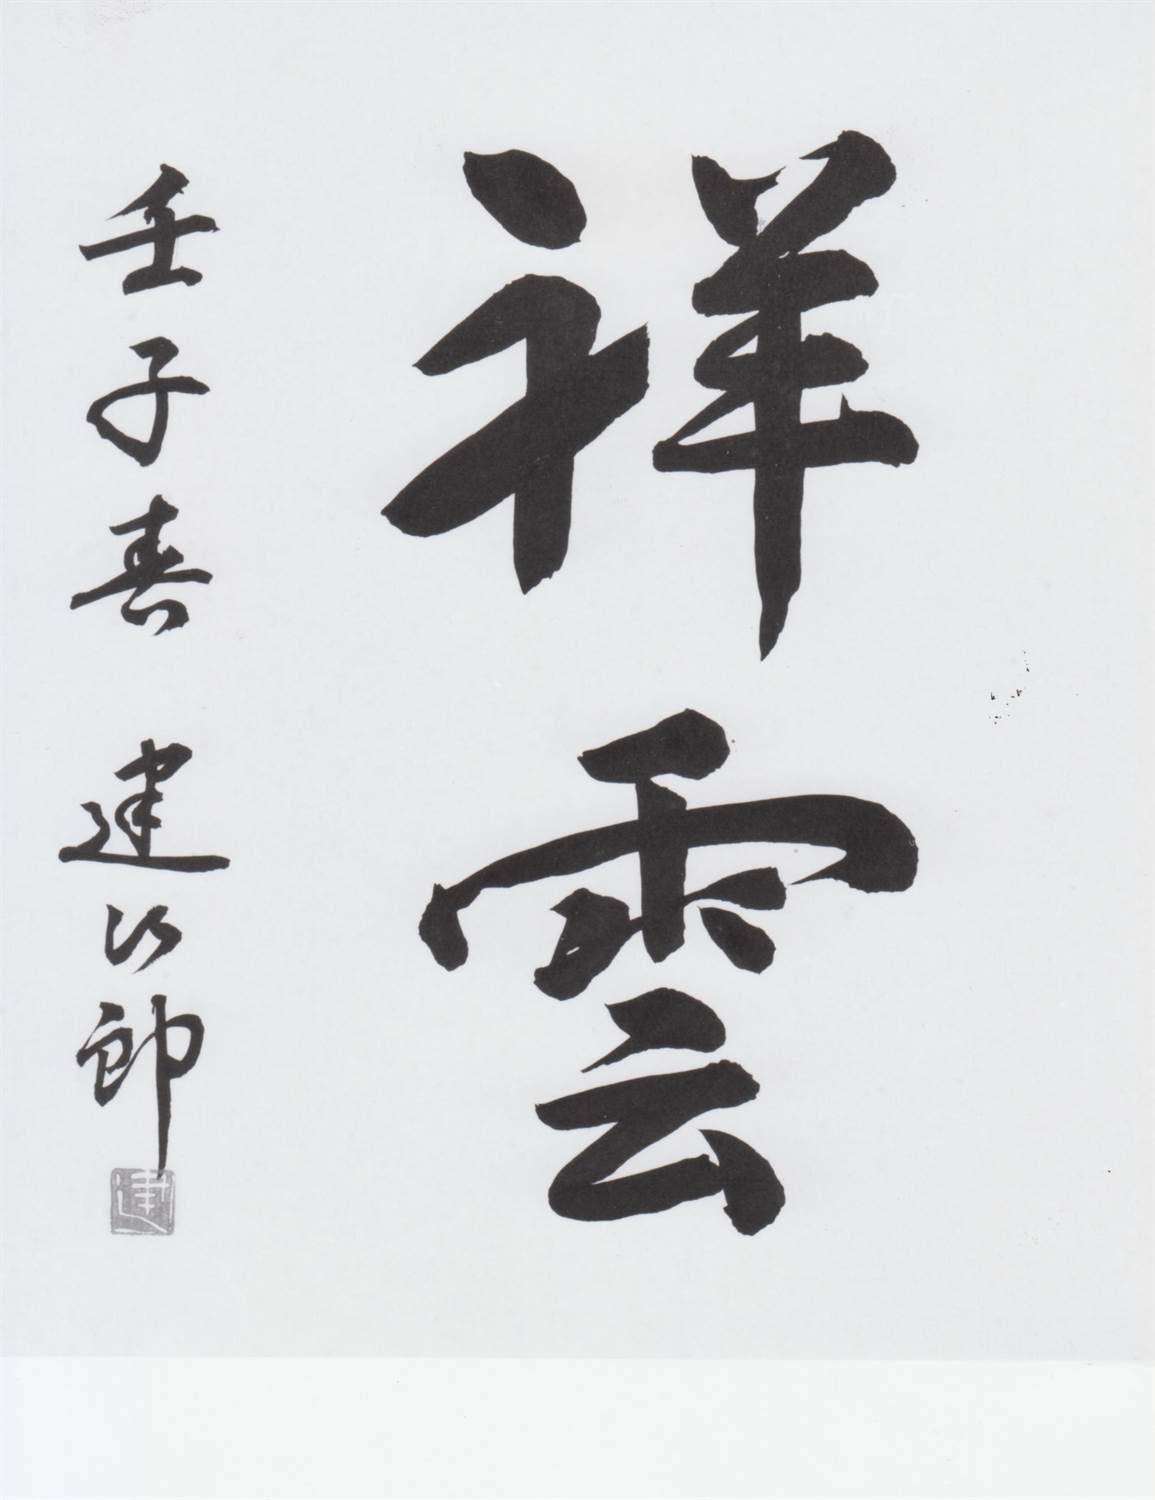 祥雲
壬子春 建次郎
建